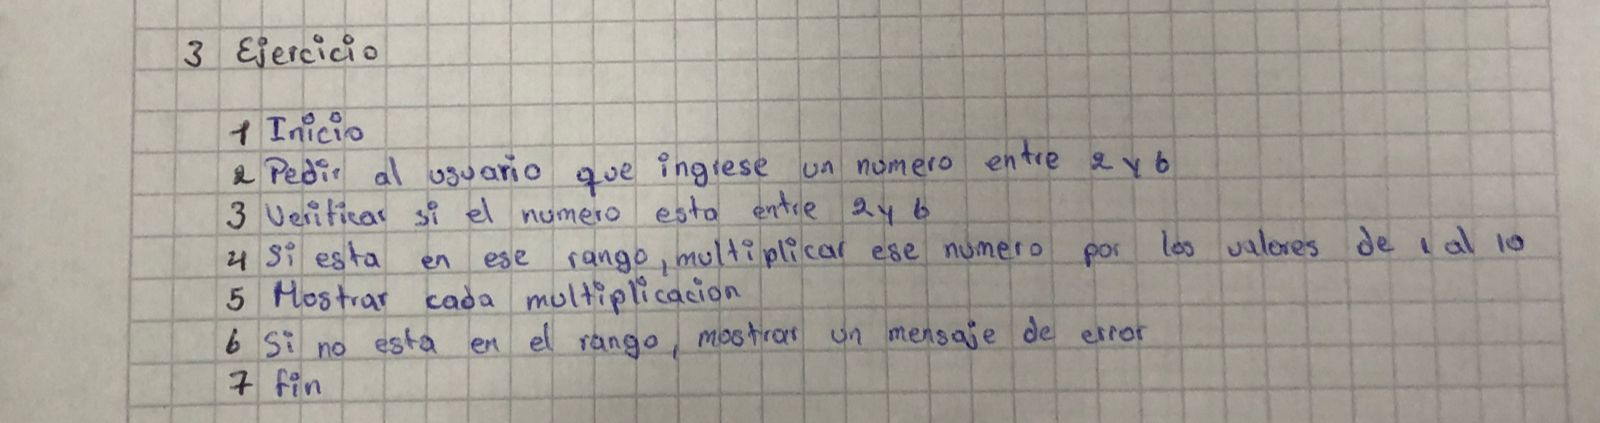 3 Ejercicio
1 Inicio
2 Pedir al usuario que ingrese un numero entre 2 y 6
3 Verificar si el numero esta entre 2 y 6
4 Si esta en ese rango, multiplicar ese numero por los valores de 1 al 10
5 Mostrar cada multiplicacion
6 Si no esta en el rango, mostrar un mensaje de error
7 fin